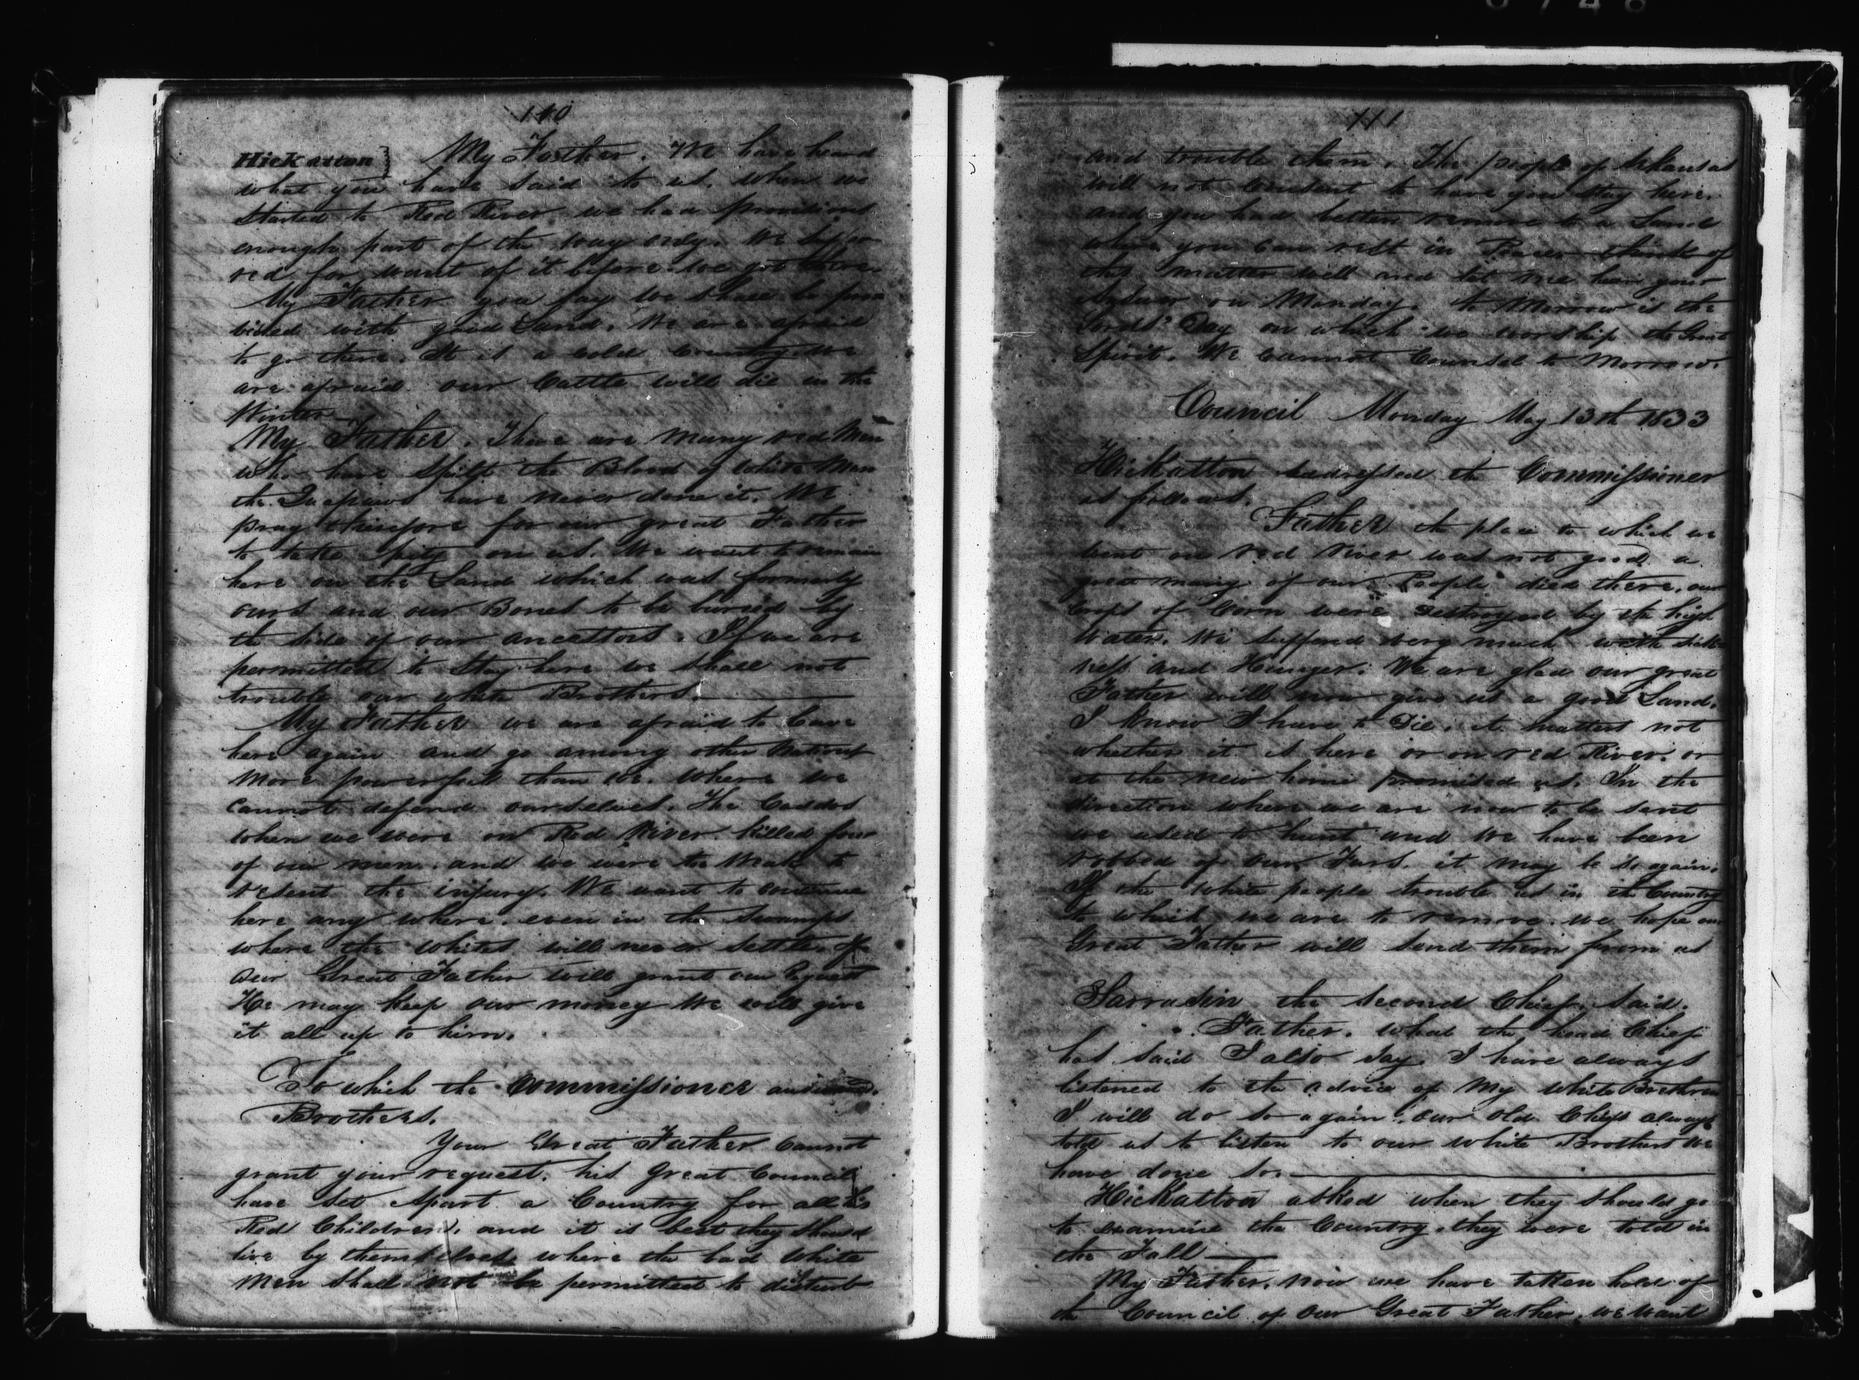 110
Hickatton} My Father. We have heard
what you have said to us. when we
started to Red River. we had provisions
enough part of the way only. We suffe-
red for want of it before we got there.
My Father you say we shall be pro-
vided with good Land. We are afraid
to go there. It is a cold Country We
are afraid our Cattle will die in the
Winter
My Father. There are many red Men
who have spilt the Blood of White Men
the Quapaws have never done it. We
pray therefore for our great Father
to take pity on us. We want to remain
here on the Land which was formerly
ours and our Bones to be buried by
the side of our ancestors. If we are
permitted to stay here we shall not
trouble our white Brothers.
My Father we are afraid to leave
here again and go among other Nations
more powerfull than we. Where we
cannot defend ourselves. The Caddos
when we were on Red River. killed four
of our men. and we were to weak to
resent the injury. We want to continue
here any where. even in the swamps
where the whites will never settle. If
our Great Father will grant our request
He may keep our money We will give
it all up to him.
To which the Commissioner answered.
Brothers.
Your Great Father Cannot
grant your request. his Great Council
have set apart a Country for all his
Red Children. and it is best they should
live by themselves where the bad White
men shall not be permitted to disturb
111
and trouble them. The people of Arkansas
will not consent to have you stay here.
and you had better remove to a Land
where you can rest in Peace think of
this matter well and let me hear your
Answer on Monday. to Morrow is the
Lords' Day on which we worship the Great
Spirit. We cannot Counsel to Morrow.
Council Monday May 13th 1833
Hickatton addressed the Commissioner
as follows.
Father the place to which we
went on red river was not good a
great many of our People died there. our
Crops of Corn were destroyed by the high
Water. We suffered very much with sick-
ness and Hunger. We are glad our great
Father will now give us a good Land.
I know I have to Die. it matters not
whether it is here or on red River. or
at the new home promised us. In the
direction where we are now to be sent
we used to hunt and we have been
robbed of our Furs. it may be so again.
If the white people trouble us in the Country
to which we are to remove. we hope our
Great Father will send them from us
Sarrasin the second Chief. said.
Father. what the head Chief
has said I also say. I have always
listened to the advice of my white Brethren
I will do so again. our old Chiefs always
told us to listen to our white Brothers We
have done so.
Hickatton asked when they should go
to examine the Country. they were told in
the Fall
My Father. now we have taken hold of
the Council of our Great Father. we want